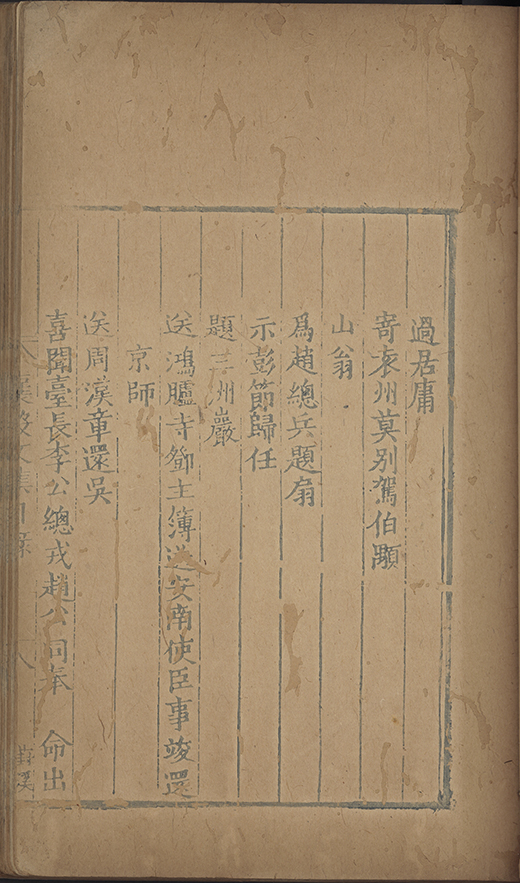 過居庸
寄袁州莫别駕伯顒
山翁
爲趙總兵題扇
示彭節歸任
題三州巖
送鴻臚寺鄧主簿送安南使臣事竣還
京師
送周漢章還吳
喜聞臺長李公總戎趙公同奉 命出
文集目録 八